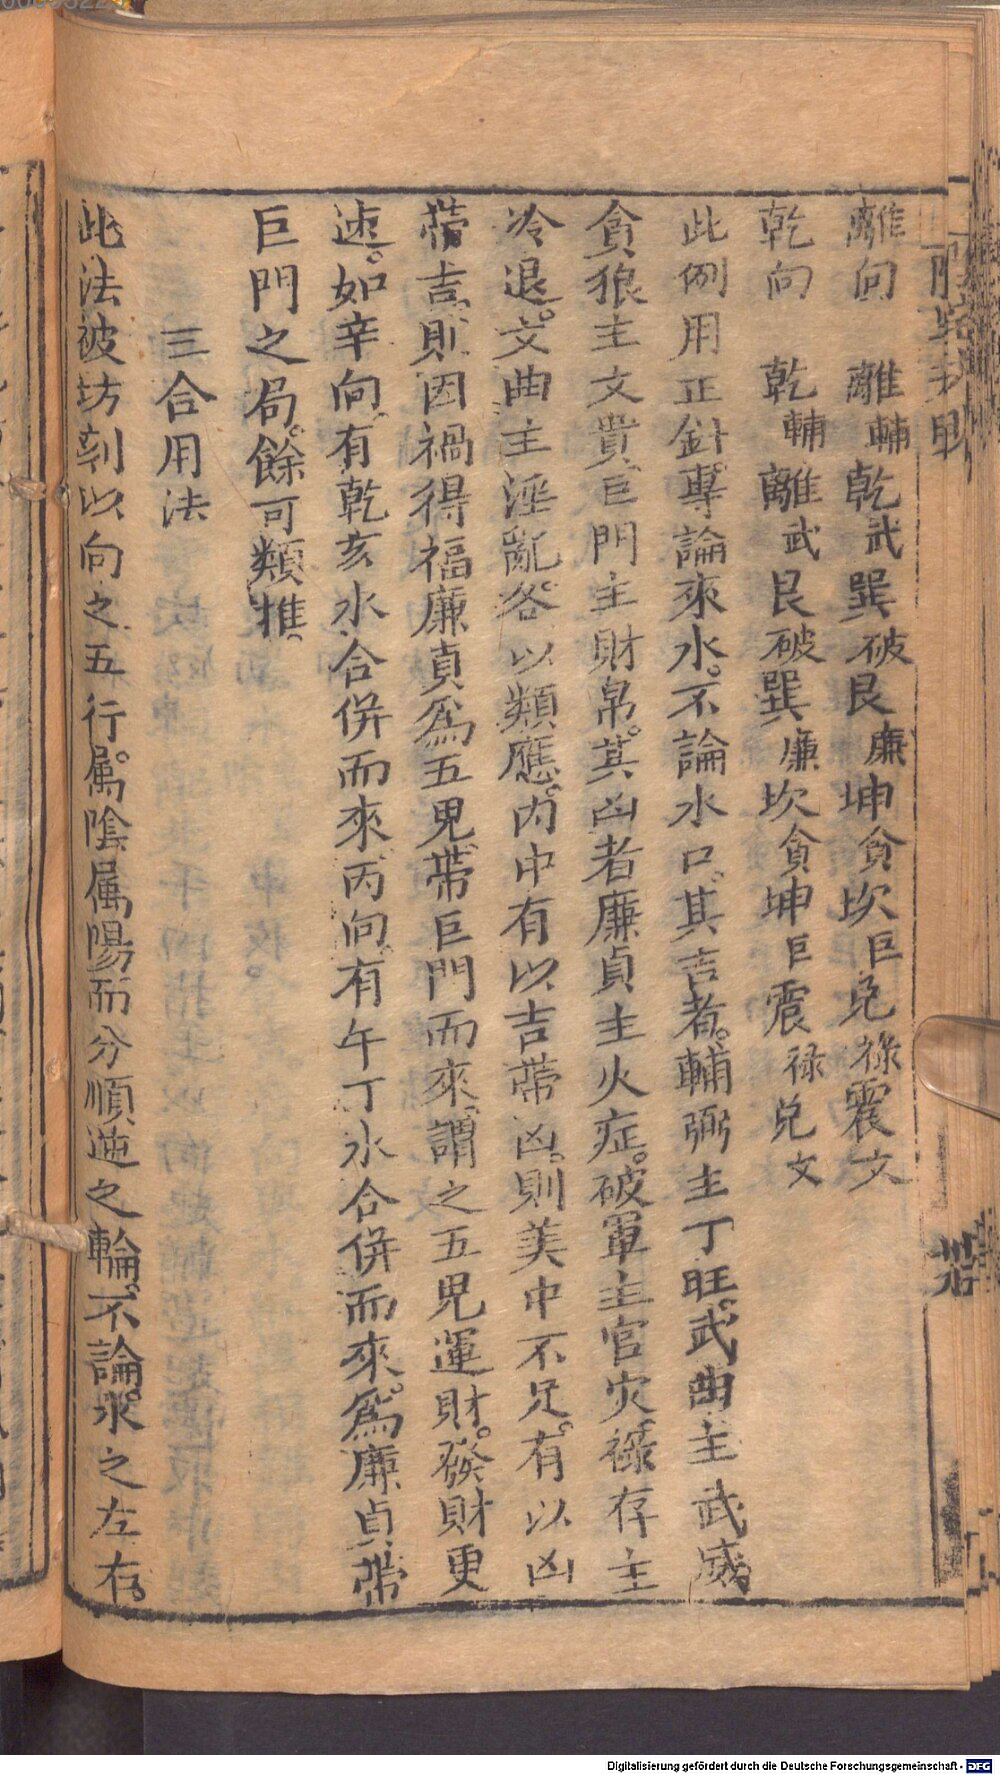 離向　離輔乾武巽破艮廉坤貪坎巨兌祿震文
乾向　乾輔離武艮破巽廉坎貪坤巨震禄兌文
此例用正針專論來水。不論水口。其吉者。輔弼主丁旺。武曲主武威。
貪狼主文貴。巨門主財帛。其凶者廉貞主火症。破軍主官灾祿存主
冷退。文曲主淫亂。各以類應。内中有以吉帶凶。則美中不足。有以凶
帶吉。則因禍得福廉貞爲五鬼。帶巨門而來。謂之五鬼運財。發財更
速。如辛向。有乾亥水合併而來丙向有午丁水合併而來。爲廉貞帶
巨門之局。餘可類推。
三合用法
此法被坊刻以向之五行。屬陰屬陽而分順逆之輪。不論水之左右。
Digitalisierung gefördert durch die Deutsche Forschungsgemeinschaft - DFG